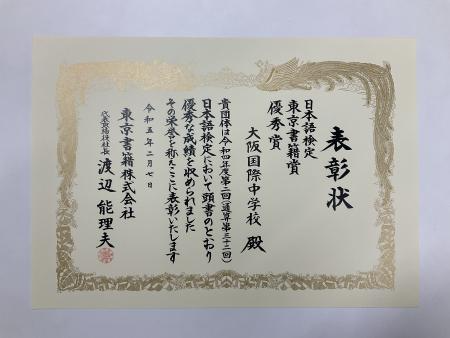 表彰状
日本語検定
東京書籍賞
優秀賞
大阪国際中学校 殿
貴団体は令和四年度第二回(通算第三十二回)
日本語検定において頭書のとおり
優秀な成績を収められました
その栄誉を称えここに表彰いたします
令和五年二月七日
東京書籍株式会社
代表取締役社長 渡辺能理夫